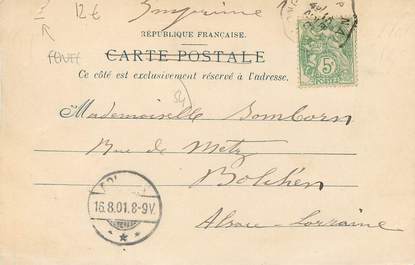 12 €
Imprimé
FENTE
RÉPUBLIQUE FRANÇAISE.
CARTE POSTALE
Ce côté est exclusivement réservé à l'adresse.
5c
POSTES
Mademoiselle Somborn
Rue de Metz
Bolchen
Alsace-Lorraine
16.8.01.8-9V.